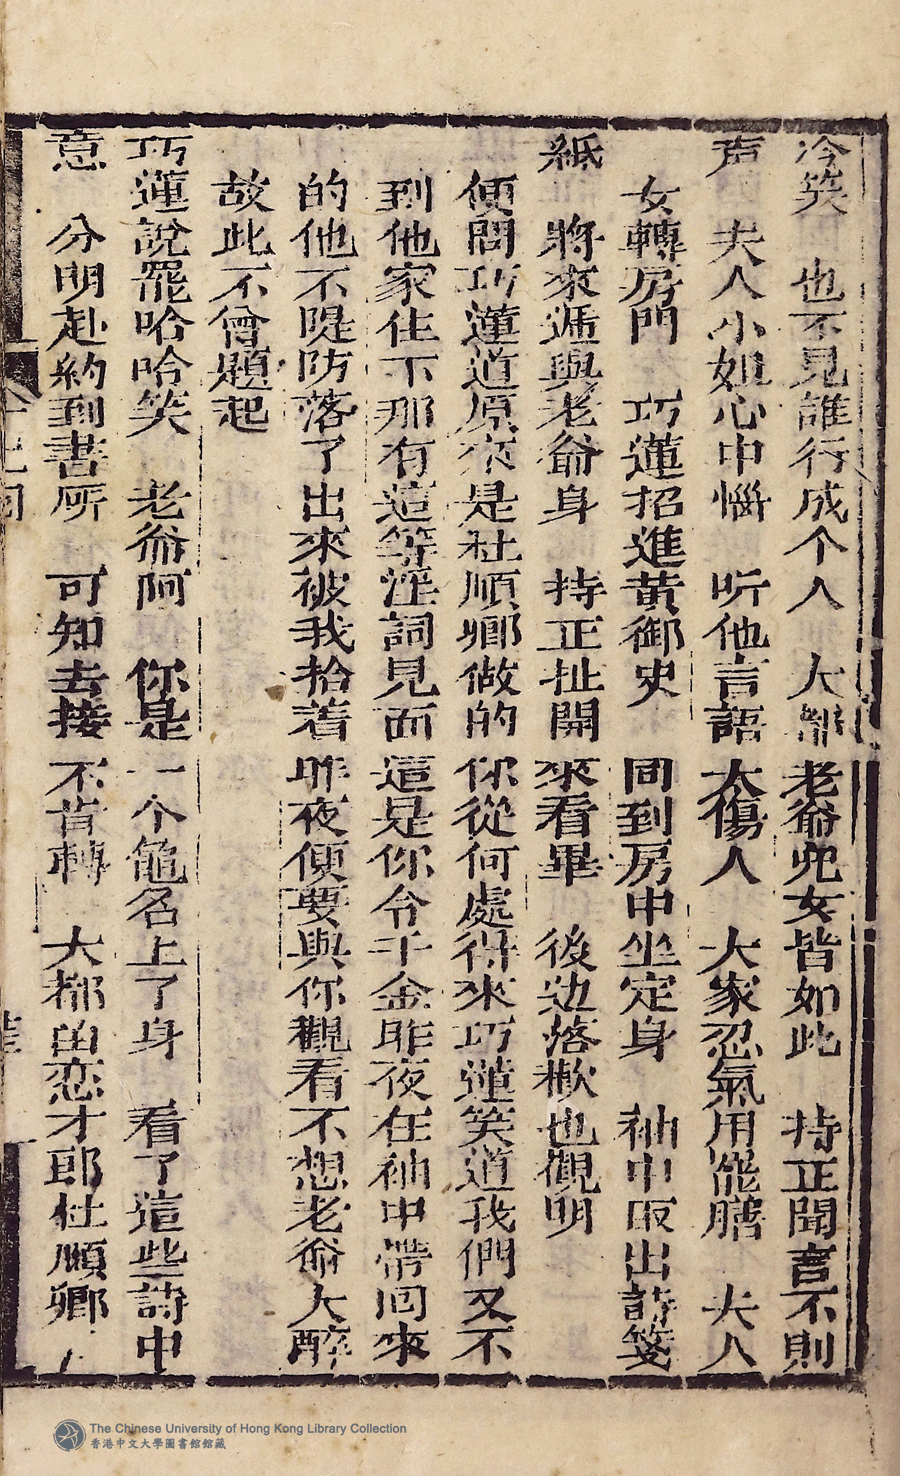 冷笑　也不見誰行成个人　大都老爺兒女皆如此　持正聞言不則
声　夫人小姐心中惱　听他言語太傷人　大家忍氣用罷膳　夫人
女轉房門　巧蓮招進黃御史　同到房中坐定身　袖中取出詩箋
紙　將來遞與老爺身　持正扯開來看畢　後边落欵也觀明
便問巧蓮道原來是杜順卿做的你從何處得來巧蓮笑道我們又不
到他家住下那有這等淫詞見面這是你令千金昨夜在袖中帶回來
的他不隄防落了出來被我拾着昨夜便要與你觀看不想老爺大醉
故此不曾題起
巧蓮說罷哈哈笑　老爺阿　你是一个龜名上了身　看了這些詩中
意　分明赴約到書房　可知去接不肯轉　大都留恋才郎杜順卿
The Chinese University of Hong Kong Library Collection
香港中文大學圖書館館藏